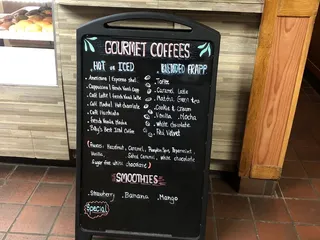 GOURMET COFFEES
HOT or ICED
BLENDED FRAPP
Americano | Espresso shot
Cappuccino | French Vanilla Capp
Café Latte | French Vanilla Latte
Café Mocha | Hot chocolate
Café
French Vanilla Mocha
Iced Coffee
Caramel Latte
Matcha Green tea
Cookie & Cream
Vanilla Mocha
White chocolate
Red Velvet
Hazelnut, Caramel, Pumpkin Spice, Peppermint,
Vanilla, Salted Caramel, white chocolate
Sugar free white chocolate )
SMOOTHIES
Strawberry Banana Mango
Special